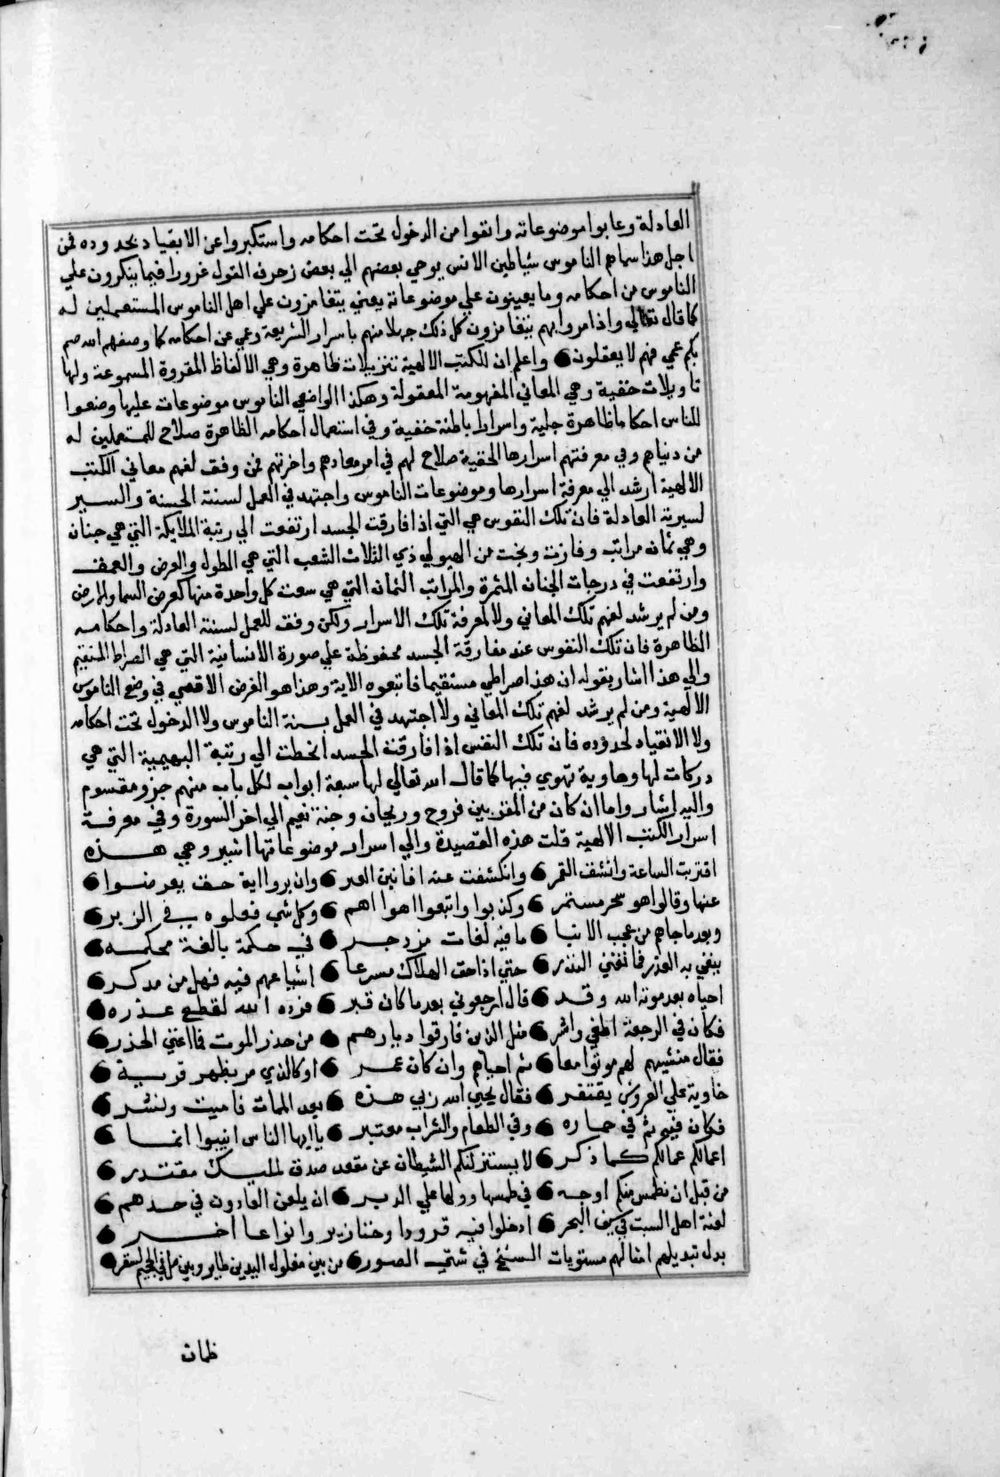 العادلة وعابوا موضوعاته وانفوا من الدخول تحت احكامه واستكبروا عن الانقياد بحدوده فمن
اجل هذا سماهم الناموس شياطين الانس يوحي بعضهم الي بعض زخرف القول غرورا فيما ينكرون علي
الناموس من احكامه وما يعيبون علي موضوعاته يعني يتغامزون علي اهل الناموس المستعملين له
كما قال تعالي واذا مروا بهم يتغامزون كل ذلك جهلا منهم باسرار الشريعة وعمي عن احكامه كما وصفهم الله صم
بكم عمي فهم لا يعقلون واعلم ان للكتب الالهية تنزيلات ظاهرة وهي الالفاظ المقروة المسموعة ولها
تاويلات خفية وهي المعاني المفهومة المعقولة وهكذا الواضعي الناموس موضوعات عليها وضعوا
للناس احكاما ظاهرة جلية واسرارا باطنة خفية وفي استعمال احكامه الظاهرة صلاح للمستعملين له
من دنياهم وفي معرفتهم اسرارها الخفية صلاح لهم في امر معادهم واخرتهم فمن وفق لفهم معاني الكتب
الالهية ارشد الي معرفة اسرارها وموضوعات الناموس واجتهد في العمل لسنته الحسنة والسير
لسيرته العادلة فان تلك النفوس هي التي اذا فارقت الجسد ارتفعت الي رتبة الملايكة التي هي جنان
وهي ثمان مراتب وفازت ونجت من الهيولي ذي الثلاث الشعب التي هي الطول والعرض والعمق
وارتفعت في درجات الجنان المثمرة والمراتب الثمان التي هي سعت كل واحدة منها كعرض السما والارض
ومن لم يرشد لفهم تلك المعاني ولا لمعرفة تلك الاسرار ولكن وفق للعمل لسنته العادلة واحكامه
الظاهرة فان تلك النفوس عند مفارقة الجسد محفوظة علي صورة الانسانية التي هي الصراط المستقيم
والي هذا اشار بقوله ان هذا صراطي مستقيما فاتبعوه الاية وهذا هو الغرض الاقصي في وضع الناموس
الالهية ومن لم يرشد لفهم تلك المعاني ولا اجتهد في العمل بسنة الناموس ولا الدخول تحت احكامه
ولا الانقياد لحدوده فان تلك النفس اذا فارقت الجسد انحطت الي رتبة البهيمية التي هي
دركات لها وهاوية تهوي فيها كما قال الله تعالي لها سبعة ابواب لكل باب منهم جزو مقسوم
واليه اشار واما ان كان من المقربين فروح وريحان وجنة نعيم الي اخر السورة وفي معرفة
اسرار الكتب الالهية قلت هذه القصيدة والي اسرار موضوعاتها اشير وهي هذه
اقتربت الساعة وانشق القمر وانكشفت عنه افانين العبر وان يروا اية حق يعرضوا
عنها وقالوا هو سحر مستمر وكذبوا واتبعوا اهواهم وكل شي فعلوه في الزبر
وبعد ما جاهم من عجب الانبا ما فيه لغات مزدجر في حكمة بالغة محكمه
يبغي به العذر فما تغني النذر حتي اذا حق الهلاك مسرعا اشياعهم فيه فهل من مدكر
احياه بعد موته الله وقد قال ارجعوني بعد ما كان قبر فرده الله لقطع عذره
فكان في الرجعة اطغي واشر مثل الذين فارقوا ديارهم من حذر الموت فما اغني الحذر
فقال منشيهم لهم موتوا معا ثم احياهم وان كان عمر اوكالذي مر بظهر قرية
خاوية علي العروش يقتفر فقال يحيي الله ربي هذه بعد الممات فاميت ونشر
فكان فيه ثم في حماره وفي الطعام والشراب معتبر يا ايها الناس انيبوا انما
اعمالكم عمالكم كما ذكر لا يستزلنكم الشيطان عن مقعد صدق لمليك مقتدر
من قبل ان نطمس منكم اوجه في طمسها وردها علي الدبر ان يلعن العادون في حدهم
لعنة اهل السبت في البحر ادخلوا فيه قرودا وخنازير وانواعا اخر
بدل تبديلهم امثالهم مستويات السنخ في شتي الصور من بين مغلول اليدين طاير وبين في الجحيم لسقر
ظمان